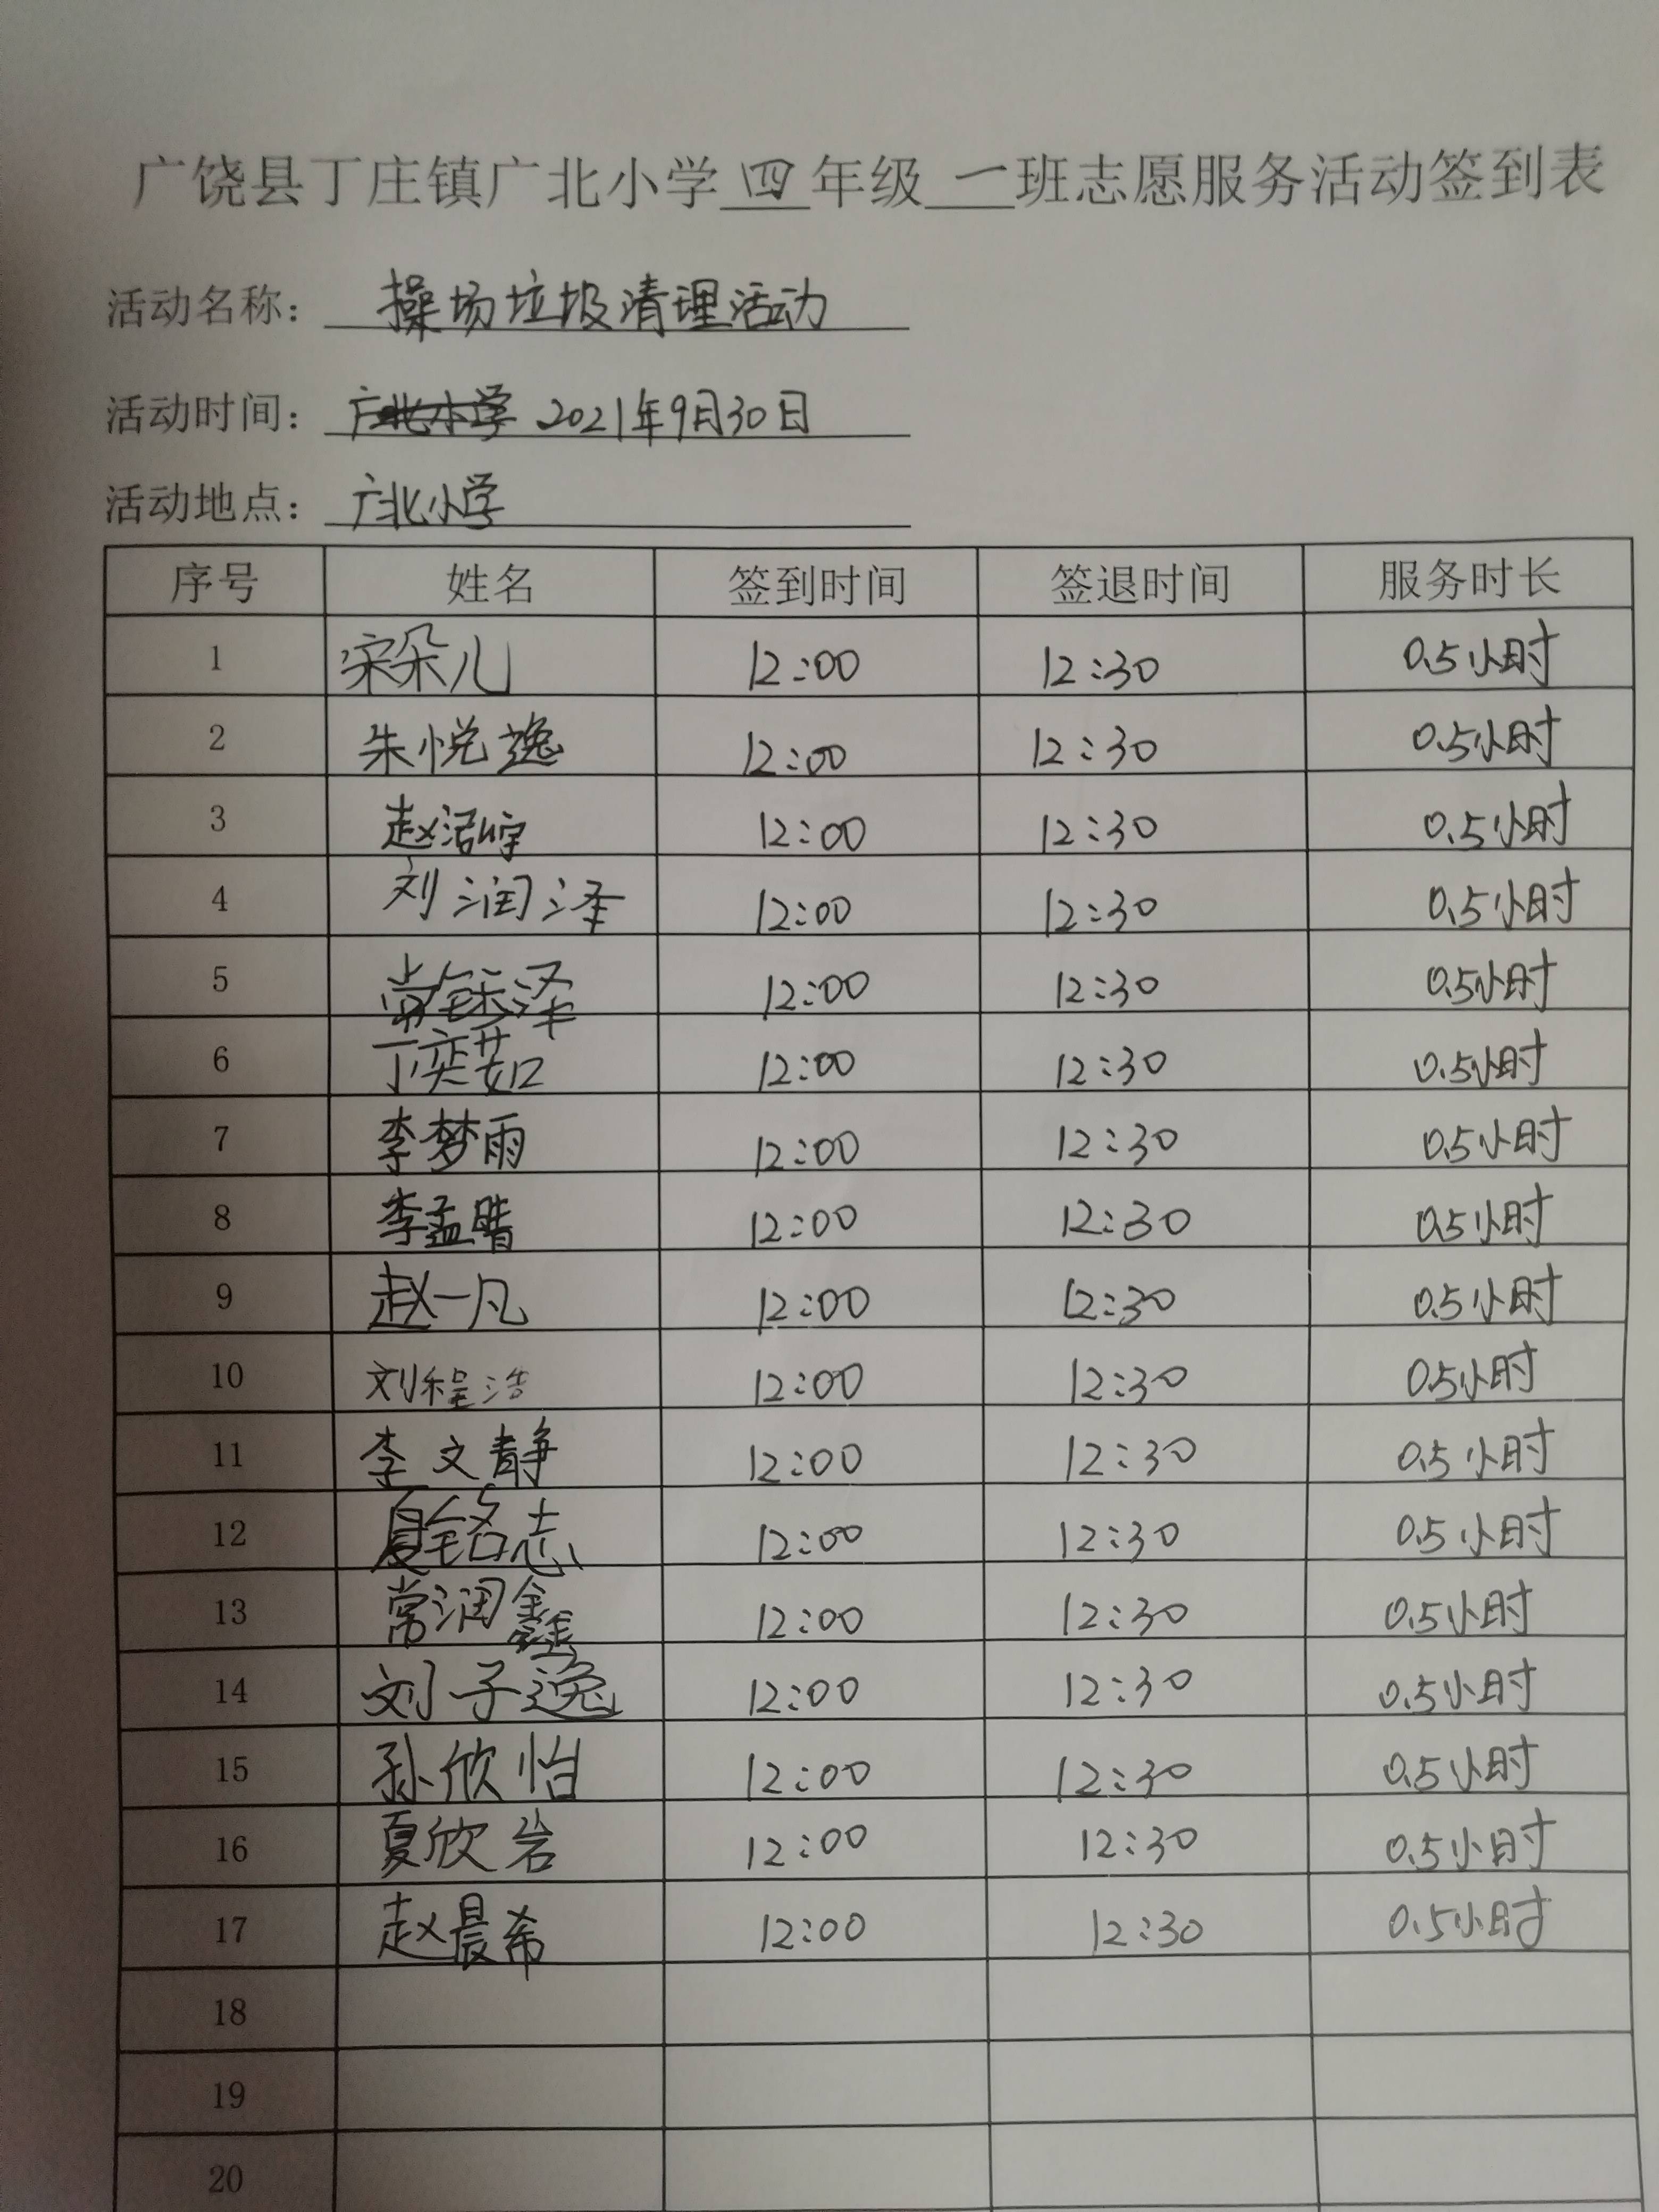 广饶县丁庄镇广北小学四年级一班志愿服务活动签到表
活动名称：操场垃圾清理活动
活动时间：广北小学 2021年9月30日
活动地点：广北小学
序号 姓名 签到时间 签退时间 服务时长
1 宋朵儿 12:00 12:30 0.5小时
2 朱悦逸 12:00 12:30 0.5小时
3 赵泓宇 12:00 12:30 0.5小时
4 刘润泽 12:00 12:30 0.5小时
5 常铄泽 12:00 12:30 0.5小时
6 丁奕茹 12:00 12:30 0.5小时
7 李梦雨 12:00 12:30 0.5小时
8 李孟腊 12:00 12:30 0.5小时
9 赵一凡 12:00 12:30 0.5小时
10 刘程浩 12:00 12:30 0.5小时
11 李文静 12:00 12:30 0.5小时
12 夏铭志 12:00 12:30 0.5小时
13 常润鑫 12:00 12:30 0.5小时
14 刘子逸 12:00 12:30 0.5小时
15 孙欣怡 12:00 12:30 0.5小时
16 夏欣岩 12:00 12:30 0.5小时
17 赵晨希 12:00 12:30 0.5小时
18
19
20